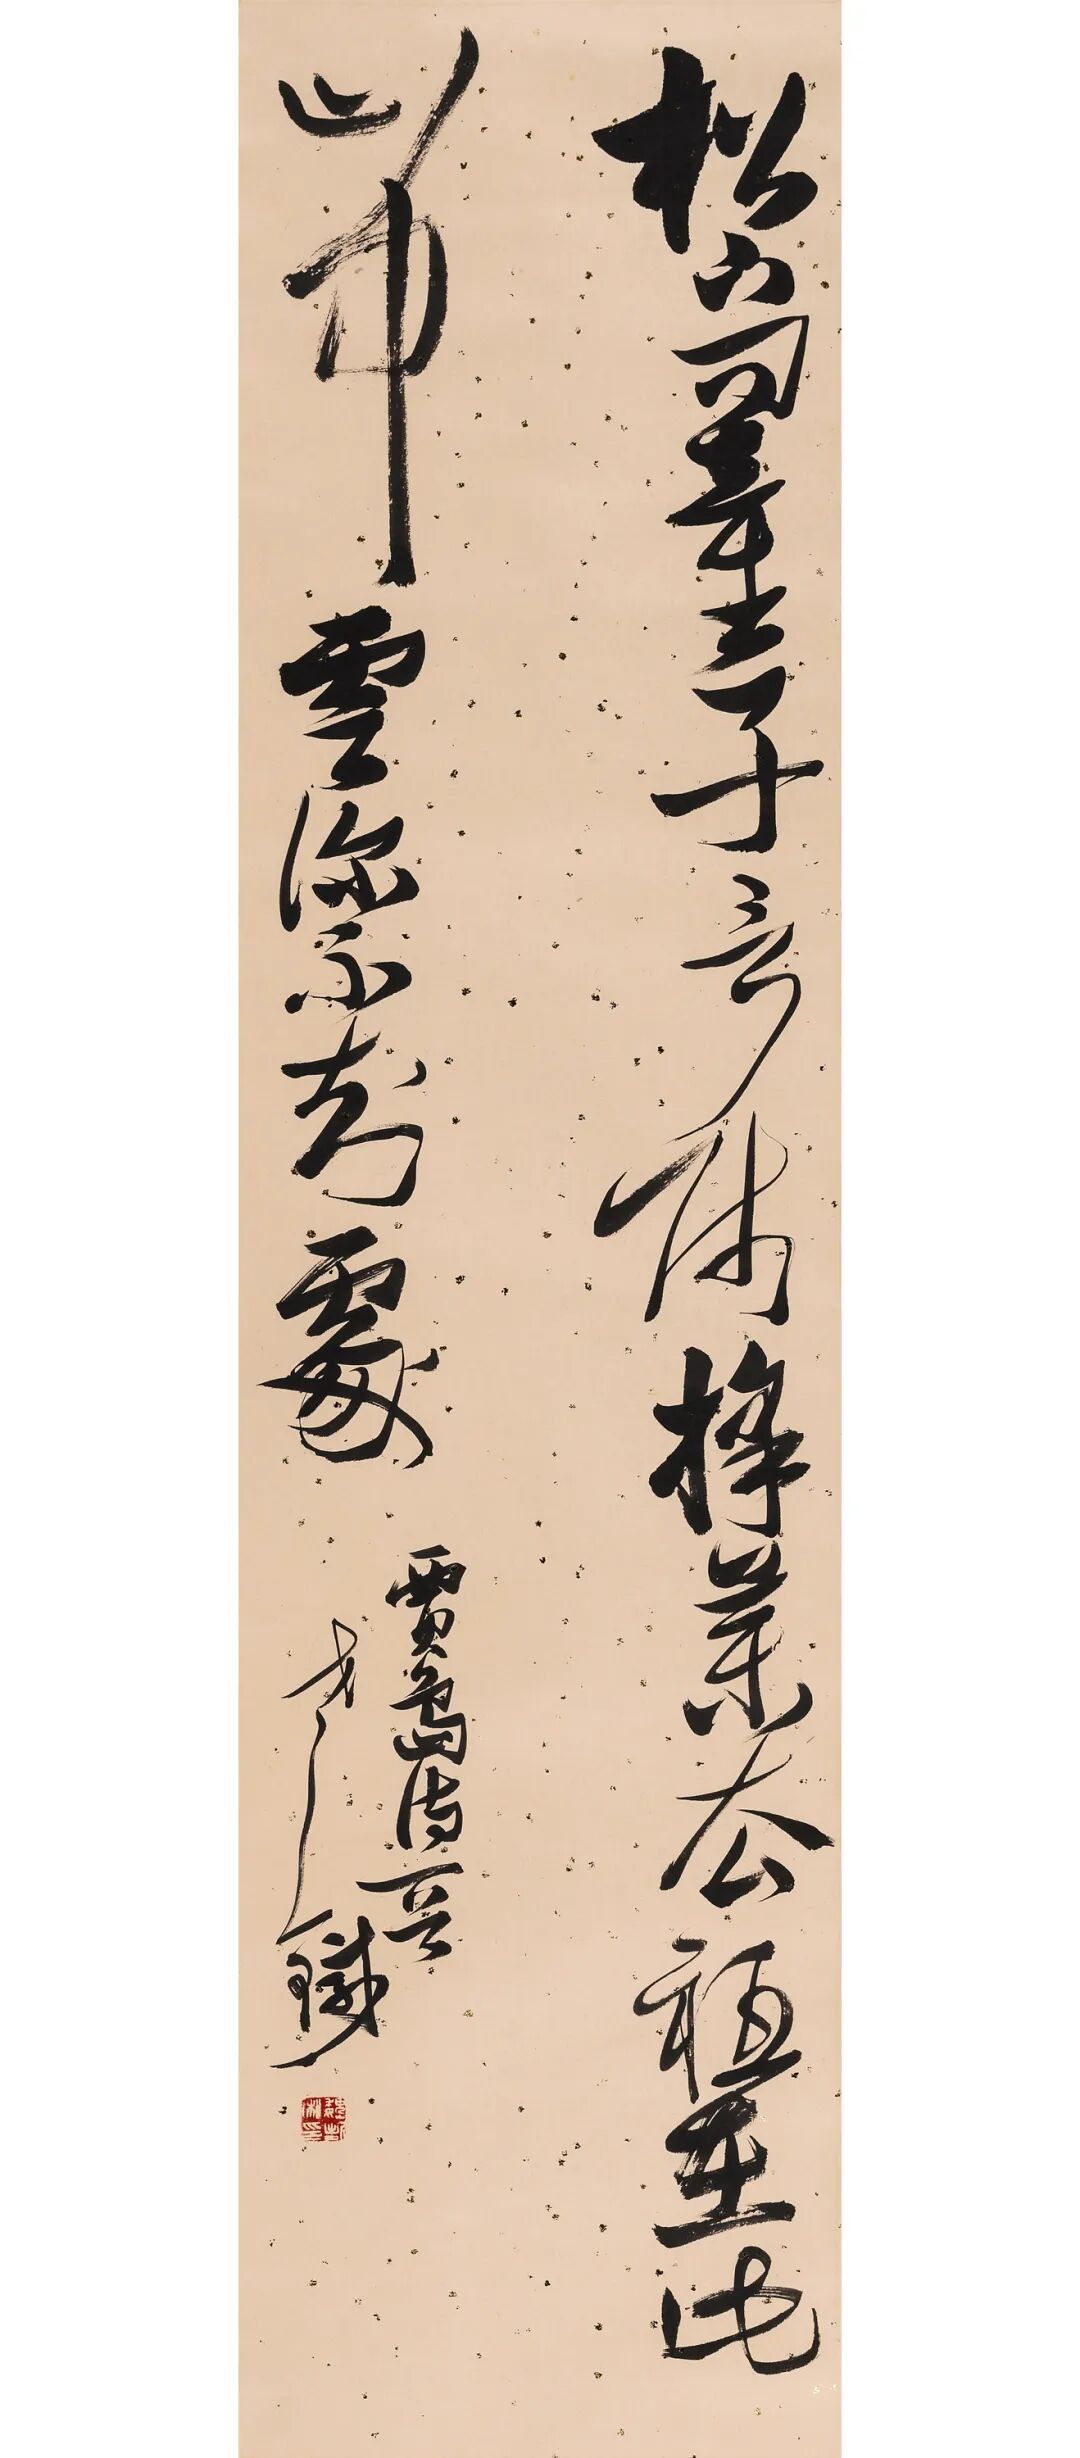 松下問童子言師採藥去祗在此
山中雲深不知處
賈島詩一首